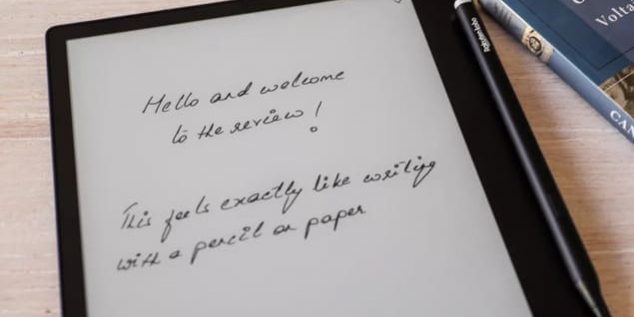 Hello and welcome
to the review!
This feels exactly like writing
with a pencil on paper
Rakuten kobo
Volta
CAN